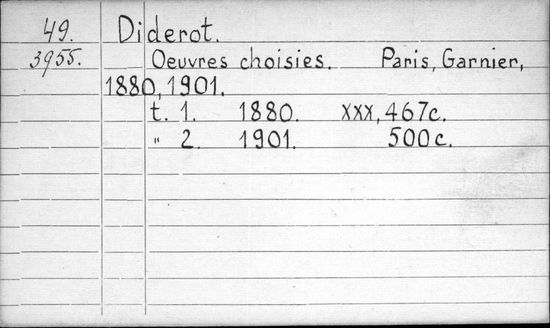 49. Diderot.
3955. Oeuvres choisies. Paris, Garnier,
1880, 1901.
t. 1. 1880. xxx, 467c.
" 2. 1901. 500c.